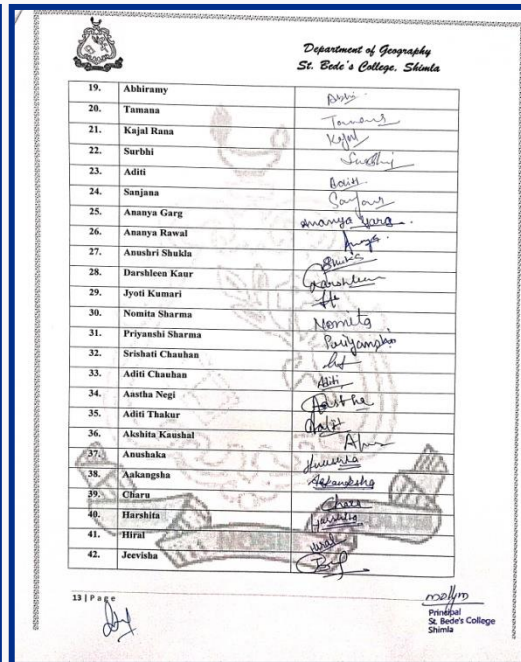 Department of Geography
St. Bede's College, Shimla
19. Abhiramy Abhi
20. Tamana Tamana
21. Kajal Rana Kajal
22. Surbhi Surbhi
23. Aditi Aditi
24. Sanjana Sanjana
25. Ananya Garg Ananya Garg
26. Ananya Rawal
27. Anushri Shukla Shukla
28. Darshleen Kaur Darshleen
29. Jyoti Kumari
30. Nomita Sharma Nomita
31. Priyanshi Sharma
32. Srishati Chauhan
33. Aditi Chauhan Aditi
34. Aastha Negi Aastha
35. Aditi Thakur Aditi
36. Akshita Kaushal
37. Anushaka
38. Aakangsha Aakanksha
39. Charu Charu
40. Harshita Harshita
41. Hiral Hiral
42. Jeevisha
13 | Page
Principal
St. Bede's College
Shimla